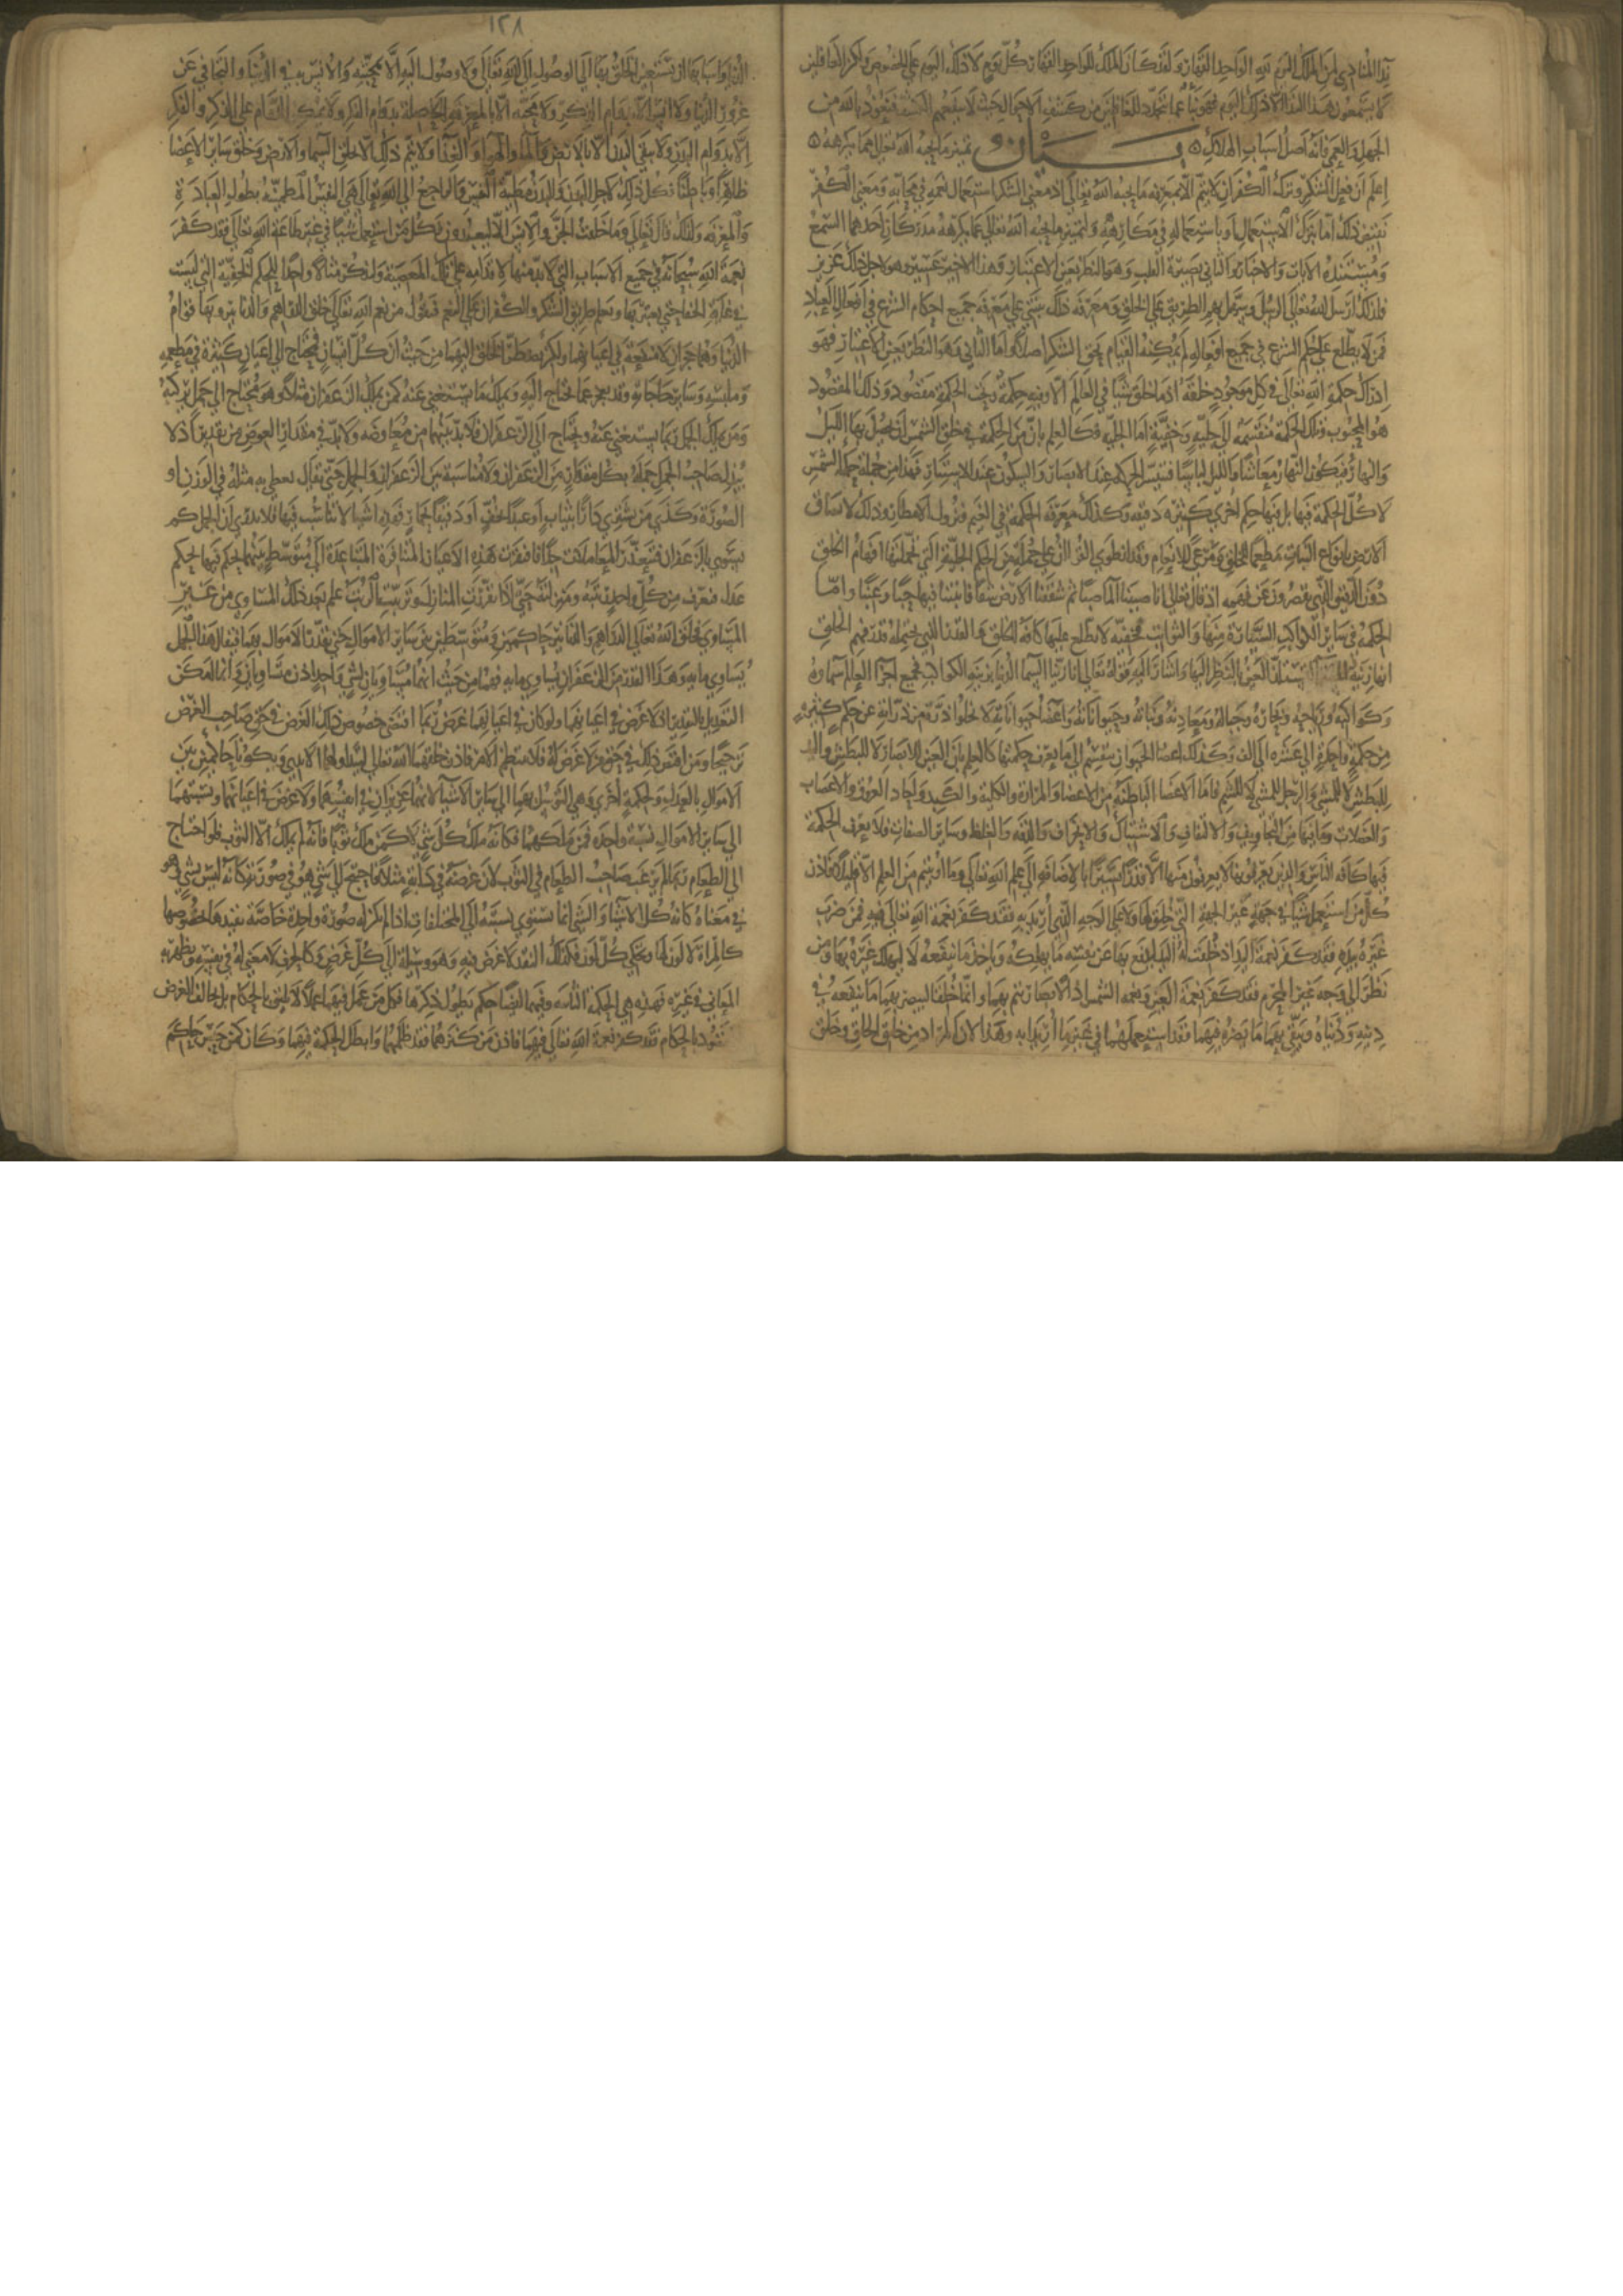 نداء المنادي لمن الملك اليوم لله الواحد القهار ولقد كان الملك لله الواحد القهار كل يوم لا ذلك اليوم على الخصوص ولكن الغافلين
لا يسمعون هذا النداء الا ذلك اليوم فهو نبأ عما يتجدد للغافلين من كشف الاحوال حيث لا ينفعهم الكشف فنعوذ بالله من
الجهل والعمى فانه اصل اسباب الهلاك ه بيان تمييز ما يحبه الله تعالى عما يكرهه ه
اعلم ان فعل الشكر وترك الكفران لا يتم الا بمعرفة ما يحبه الله تعالى اذ معنى الشكر استعمال نعمه في محابه ومعنى الكفر
نقيض ذلك اما بترك الاستعمال او باستعماله في مكارهه ولتمييز ما يحبه الله تعالى عما يكرهه مدركان احدهما السمع
ومستنده الايات والاخبار والثاني بصيرة القلب وهو النظر بعين الاعتبار وهذا الاخير عسير وهو لاجل ذلك عزيز
فلذلك ارسل الله تعالى الرسل وسهل بهم الطريق على الخلق ومعرفة ذلك تنبني على معرفة جميع احكام الشرع في افعال العباد
فمن لا يطلع على حكم الشرع في جميع افعاله لم يمكنه القيام بحق الشكر اصلا واما الثاني وهو النظر بعين الاعتبار فهو
ادراك حكمة الله تعالى في كل موجود خلقه اذ ما خلق شيا في العالم الا وفيه حكمة وتحت الحكمة مقصود وذلك المقصود
هو المحبوب وتلك الحكمة منقسمة الى جلية وخفية اما الجلية فكالعلم بان من الحكمة في خلق الشمس ان يحصل بها الليل
والنهار فيكون النهار معاشا والليل لباسا فتيسر الحركة عند الابصار والسكون عند الاستتار فهذا من جملة حكم الشمس
لا كل الحكمة فيها بل فيها حكم اخرى كثيرة دقيقة وكذلك معرفة الحكمة في الغيم ونزول الامطار وذلك لانشقاق
الارض بانواع النبات مطعما للخلق ومرعى للانعام وقد انطوى القران على جملة من الحكم الجلية التي تحملها افهام الخلق
دون الدقيق الذي يقصرون عن فهمه اذ قال تعالى انا صببنا الماء صبا ثم شققنا الارض شقا فانبتنا فيها حبا وعنبا واما
الحكمة في ساير الكواكب السيارة منها والثوابت فخفية لا يطلع عليها كافة الخلق والقدر الذي يحتمله فهم الخلق
انها زينة للسماء لتستلذ العين بالنظر اليها واشار اليه قوله تعالى انا زينا السماء الدنيا بزينة الكواكب فجميع اجزاء العالم سماوه
وكواكبه ورياحه وبحاره وجباله ومعادنه ونباته وحيواناته واعضاء حيواناته لا تخلوا ذرة من ذراته عن حكم كثيرة
من حكمة واحدة الى عشرة الى الف وكذلك اعضاء الحيوان تنقسم الى ما يعرف حكمتها كالعلم بان العين للابصار لا للبطش واليد
للبطش لا للمشي والرجل للمشي لا للشم فاما الاعضاء الباطنة من الامعاء والمرارة والكلية والكبد واحاد العروق والاعصاب
والعضلات وما فيها من التجاويف والالتفاف والاشتباك والانحراف والدقة والغلظ وساير الصفات فلا يعرف الحكمة
فيها كافة الناس والذين يعرفونها لا يعرفون منها الا قدرا يسيرا بالاضافة الى علم الله تعالى وما اوتيتم من العلم الا قليلا فاذن
كل من استعمل شيا في جهة غير الجهة التي خلق لها ولا على الوجه الذي اريد به فقد كفر نعمة الله تعالى فيه فمن ضرب
غيره بيده فقد كفر نعمة اليد اذ خلقت له اليد ليدفع بها عن نفسه ما يهلكه وياخذ ما ينفعه لا ليهلك غيره بها ومن
نظر الى وجه غير المحرم فقد كفر نعمة العين ونعمة الشمس اذ الابصار يتم بهما وانما خلقتا ليبصر بهما ما ينفعه في
دينه ودنياه ويتقي بهما ما يضره فيهما فقد استعملهما في غير ما اريدا به وهذا لان المراد من خلق الخلق وخلق
١٢٨
الدنيا واسبابها ان يستعين الخلق بها الى الوصول الى الله تعالى ولا وصول اليه الا بمحبته والانس به في الدنيا والتجافي عن
غرور الدنيا ولا انس الا بدوام الذكر ولا محبة الا بالمعرفة الحاصلة بدوام الفكر ولا يمكن الدوام على الذكر والفكر
الا بدوام البدن ولا يبقى البدن الا بالارض والماء والهواء والغذاء ولا يتم ذلك الا بخلق السماء والارض وخلق ساير الاعضاء
ظاهرا وباطنا فكل ذلك لاجل البدن والبدن مطية النفس والراجع الى الله تعالى هي النفس المطمئنة بطول العبادة
والمعرفة ولذلك قال تعالى وما خلقت الجن والانس الا ليعبدون فكل من استعمل شيا في غير طاعة الله تعالى فقد كفر
نعمة الله سبحانه في جميع الاسباب التي لا بد منها لاقدامه على تلك المعصية ولنذكر مثالا واحدا للحكم الخفية التي ليست
في غاية الخفا حتى يعتبر بها ويعلم طريق الشكر والكفران على النعم فنقول من نعم الله تعالى خلق الدراهم والدنانير وبهما قوام
الدنيا وهما حجران لا منفعة في اعيانهما ولكن يضطر الخلق اليهما من حيث ان كل انسان محتاج الى اعيان كثيرة في مطعمه
وملبسه وساير حاجاته وقد يعجز عما يحتاج اليه ويملك ما يستغني عنه كمن يملك الزعفران مثلا وهو محتاج الى جمل يركبه
ومن يملك الجمل ربما يستغني عنه ويحتاج الى الزعفران فلا بد بينهما من معاوضة ولا بد في مقدار العوض من تقدير اذ لا
يبذل صاحب الجمل جمله بكل مقدار من الزعفران ولا مناسبة بين الزعفران والجمل حتى يقال يعطي به مثله في الوزن او
الصورة وكذى من يشتري دارا بثياب او عبدا بخف او دقيقا بحمار فهذه الاشيا لا تناسب فيها فلا يدري ان الجمل كم
يستوي بالزعفران فتتعذر المعاملات جدا فافتقرت هذه الاعيان المتنافرة المتباعدة الى متوسط بينهما يحكم فيها بحكم
عدل فيعرف من كل واحد رتبته ومنزلته حتى اذا تقررت المنازل وترتبت الرتب علم بعد ذلك المساوي من غير
المساوي فخلق الله تعالى الدراهم والدنانير حاكمين ومتوسطين بين ساير الاموال حتى تقدر الاموال بهما فيقال هذا الجمل
يساوي ماية وهذا القدر من الزعفران يساوي ماية فهما من حيث انهما مساويان لشي واحد اذن متساويان وانما امكن
التعديل بالنقدين اذ لا غرض في اعيانهما ولو كان في اعيانهما غرض ربما اقتضى خصوص ذلك الغرض في حق صاحب الغرض
ترجيحا ولم يقتض ذلك في حق من لا غرض له فلا ينتظم الامر فاذن خلقهما الله تعالى لتتداولهما الايدي ويكونا حاكمين بين
الاموال بالعدل ولحكمة اخرى وهي التوسل بهما الى ساير الاشياء لانهما عزيزان في انفسهما ولا غرض في اعيانهما ونسبتهما
الى ساير الاموال نسبة واحدة فمن ملكهما فكانه ملك كل شي لا كمن ملك ثوبا فانه لم يملك الا الثوب فلو احتاج
الى الطعام ربما لم يرغب صاحب الطعام في الثوب لان غرضه في دابة مثلا فاحتيج الى شي هو في صورته كانه ليس بشي وهو
في معناه كانه كل الاشياء والشي انما تستوي نسبته الى المختلفات اذا لم تكن له صورة واحدة خاصة تفيدها بخصوصها
كالمراة لا لون لها وتحكي كل لون فكذلك النقد لا غرض فيه وهو وسيلة الى كل غرض وكالحرف لا معنى له في نفسه وتظهر به
المعاني في غيره فهذه هي الحكمة الثانية وفيهما ايضا حكم يطول ذكرها فكل من عمل فيهما عملا لا يليق بالحكم بل يخالف الغرض
المقصود بالحكم فقد كفر نعمة الله تعالى فيهما فاذن من كنزهما فقد ظلمهما وابطل الحكمة فيهما وكان كمن حبس حاكم